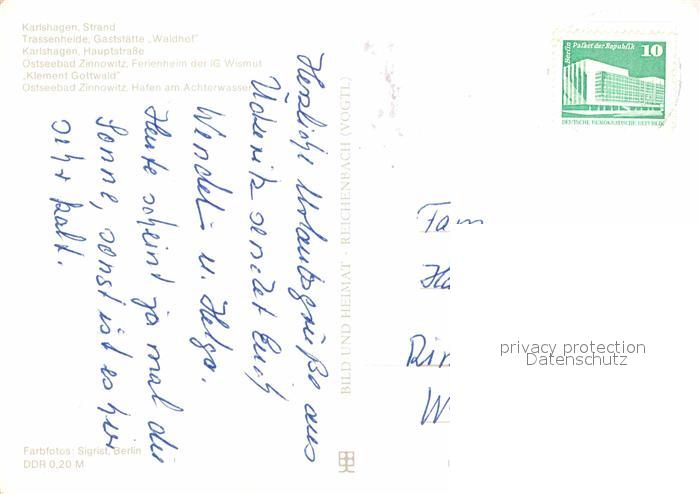 Karlshagen, Strand
Trassenheide, Gaststätte „Waldhof"
Karlshagen, Hauptstraße
Ostseebad Zinnowitz, Ferienheim der IG Wismut
„Klement Gottwald"
Ostseebad Zinnowitz, Hafen am Achterwasser
Herzliche Urlaubsgrüße aus
Ückeritz sendet Euch
Wendel u. Helga.
Heute scheint ja mal die
Sonne, sonst ist es hier
sehr kalt.
Farbfotos: Sigrist, Berlin
DDR 0,20 M
BILD UND HEIMAT · REICHENBACH (VOGTL)
Berlin Palast der Republik 10
DEUTSCHE DEMOKRATISCHE REPUBLIK
Fam
privacy protection
Datenschutz